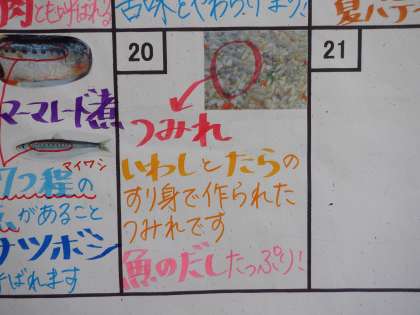 肉ともよばれる
苦味とやわらげます!
夏バテ
マーマレード煮
マイワシ
7つ程の
があること
ナツボシ
ばれます
20
つみれ
いわしとたらの
すり身で作られた
つみれです
魚のだしたっぷり!
21